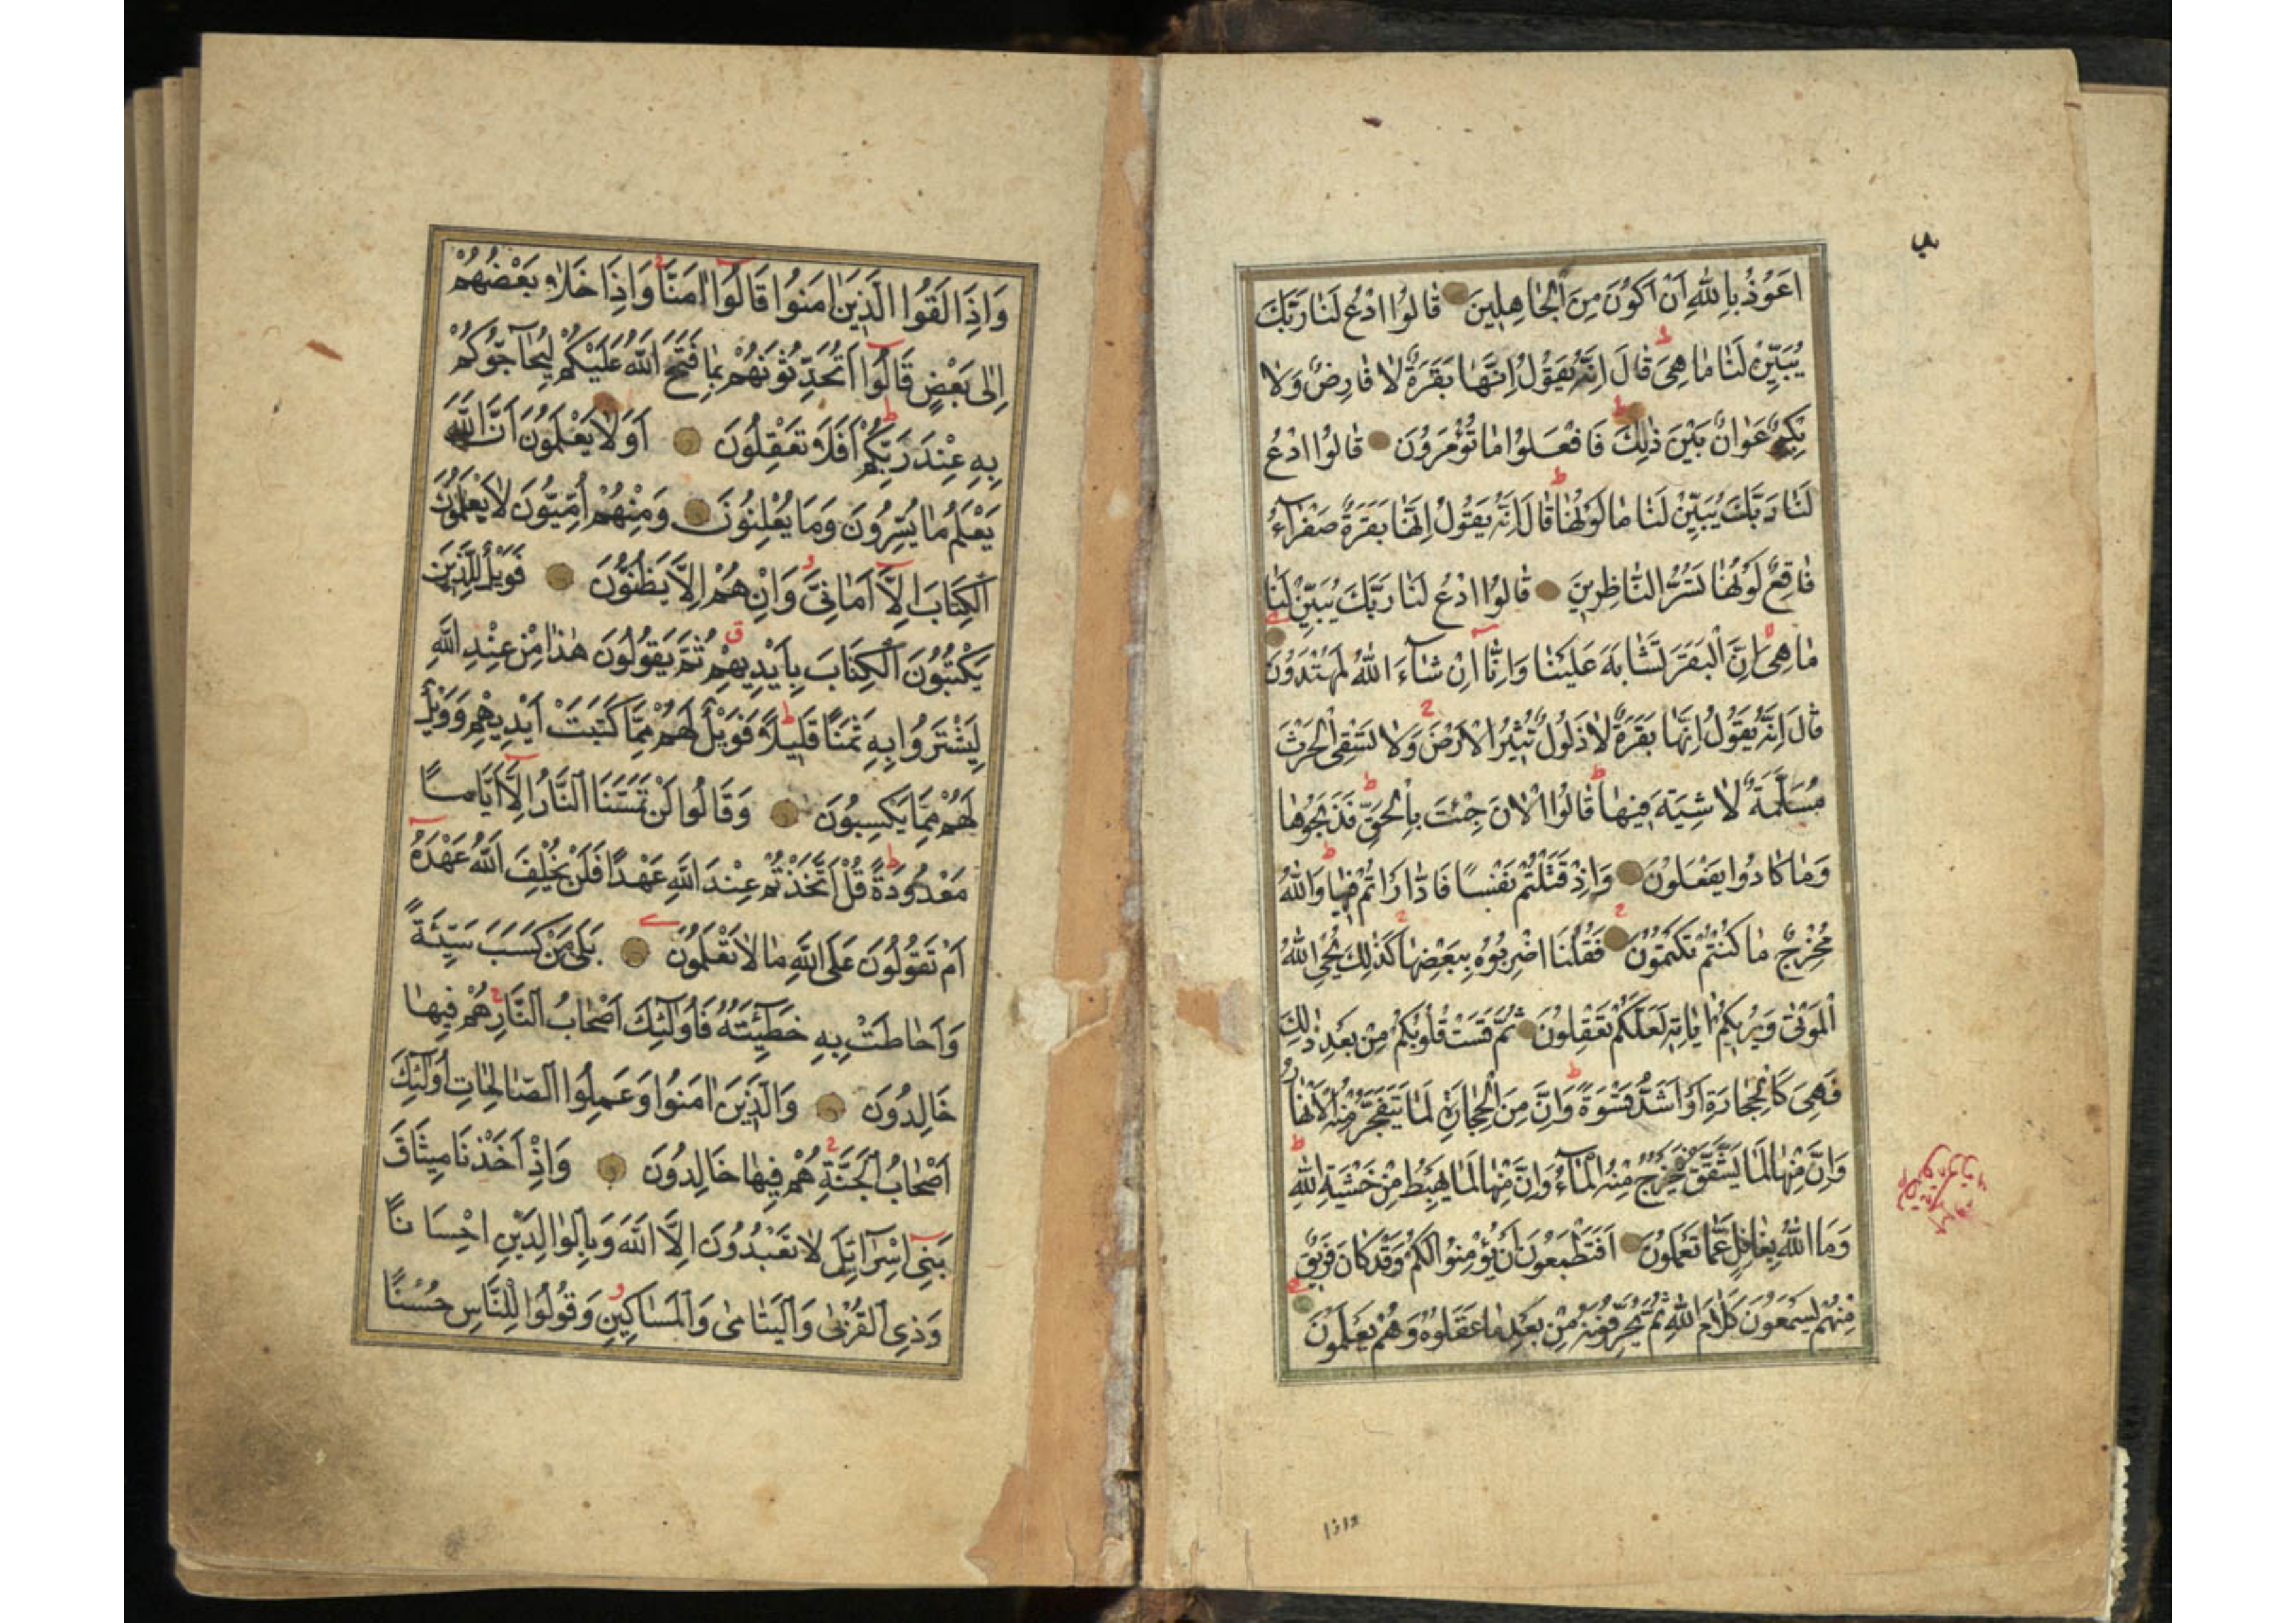 اَعُوْذُ بِاللّٰهِ اَنْ اَكُوْنَ مِنَ الْجَاهِلِينَ قَالُوا ادْعُ لَنَا رَبَّكَ
يُبَيِّنْ لَنَا مَا هِىَ قَالَ اِنَّهُ يَقُوْلُ اِنَّهَا بَقَرَةٌ لَا فَارِضٌ وَلَا
بِكْرٌ عَوَانٌ بَيْنَ ذٰلِكَ فَافْعَلُوا مَا تُؤْمَرُوْنَ قَالُوا ادْعُ
لَنَا رَبَّكَ يُبَيِّنْ لَنَا مَا لَوْنُهَا قَالَ اِنَّهُ يَقُوْلُ اِنَّهَا بَقَرَةٌ صَفْرَآءُ
فَاقِعٌ لَوْنُهَا تَسُرُّ النَّاظِرِينَ قَالُوا ادْعُ لَنَا رَبَّكَ يُبَيِّنْ لَنَا
مَا هِىَ اِنَّ الْبَقَرَ تَشَابَهَ عَلَيْنَا وَاِنَّآ اِنْ شَآءَ اللّٰهُ لَمُهْتَدُوْنَ
قَالَ اِنَّهُ يَقُوْلُ اِنَّهَا بَقَرَةٌ لَا ذَلُولٌ تُثِيْرُ الْاَرْضَ وَلَا تَسْقِى الْحَرْثَ
مُسَلَّمَةٌ لَا شِيَةَ فِيهَا قَالُوا الْاٰنَ جِئْتَ بِالْحَقِّ فَذَبَحُوْهَا
وَمَا كَادُوا يَفْعَلُوْنَ وَاِذْ قَتَلْتُمْ نَفْسًا فَادَّارَاْتُمْ فِيهَا وَاللّٰهُ
مُخْرِجٌ مَا كُنْتُمْ تَكْتُمُوْنَ فَقُلْنَا اضْرِبُوْهُ بِبَعْضِهَا كَذٰلِكَ يُحْىِ اللّٰهُ
الْمَوْتٰى وَيُرِيكُمْ اٰيَاتِهِ لَعَلَّكُمْ تَعْقِلُوْنَ ثُمَّ قَسَتْ قُلُوْبُكُمْ مِنْ بَعْدِ ذٰلِكَ
فَهِىَ كَالْحِجَارَةِ اَوْ اَشَدُّ قَسْوَةً وَاِنَّ مِنَ الْحِجَارَةِ لَمَا يَتَفَجَّرُ مِنْهُ الْاَنْهَارُ
وَاِنَّ مِنْهَا لَمَا يَشَّقَّقُ فَيَخْرُجُ مِنْهُ الْمَآءُ وَاِنَّ مِنْهَا لَمَا يَهْبِطُ مِنْ خَشْيَةِ اللّٰهِ
وَمَا اللّٰهُ بِغَافِلٍ عَمَّا تَعْمَلُوْنَ اَفَتَطْمَعُوْنَ اَنْ يُؤْمِنُوْا لَكُمْ وَقَدْ كَانَ فَرِيقٌ
مِنْهُمْ يَسْمَعُوْنَ كَلَامَ اللّٰهِ ثُمَّ يُحَرِّفُوْنَهُ مِنْ بَعْدِ مَا عَقَلُوْهُ وَهُمْ يَعْلَمُوْنَ
واذا
وَاِذَا لَقُوا الَّذِينَ اٰمَنُوا قَالُوا اٰمَنَّا وَاِذَا خَلَا بَعْضُهُمْ
اِلٰى بَعْضٍ قَالُوا اَتُحَدِّثُونَهُمْ بِمَا فَتَحَ اللّٰهُ عَلَيْكُمْ لِيُحَآجُّوكُمْ
بِهِ عِنْدَ رَبِّكُمْ اَفَلَا تَعْقِلُونَ اَوَلَا يَعْلَمُونَ اَنَّ اللّٰهَ
يَعْلَمُ مَا يُسِرُّونَ وَمَا يُعْلِنُونَ وَمِنْهُمْ اُمِّيُّونَ لَا يَعْلَمُونَ
الْكِتَابَ اِلَّآ اَمَانِىَّ وَاِنْ هُمْ اِلَّا يَظُنُّونَ فَوَيْلٌ لِلَّذِينَ
يَكْتُبُونَ الْكِتَابَ بِاَيْدِيهِمْ ثُمَّ يَقُولُونَ هٰذَا مِنْ عِنْدِ اللّٰهِ
لِيَشْتَرُوا بِهِ ثَمَنًا قَلِيلًا فَوَيْلٌ لَهُمْ مِمَّا كَتَبَتْ اَيْدِيهِمْ وَوَيْلٌ
لَهُمْ مِمَّا يَكْسِبُونَ وَقَالُوا لَنْ تَمَسَّنَا النَّارُ اِلَّآ اَيَّامًا
مَعْدُودَةً قُلْ اَتَّخَذْتُمْ عِنْدَ اللّٰهِ عَهْدًا فَلَنْ يُخْلِفَ اللّٰهُ عَهْدَهُ
اَمْ تَقُولُونَ عَلَى اللّٰهِ مَا لَا تَعْلَمُونَ بَلٰى مَنْ كَسَبَ سَيِّئَةً
وَاَحَاطَتْ بِهِ خَطِيٓئَتُهُ فَاُولٰٓئِكَ اَصْحَابُ النَّارِ هُمْ فِيهَا
خَالِدُونَ وَالَّذِينَ اٰمَنُوا وَعَمِلُوا الصَّالِحَاتِ اُولٰٓئِكَ
اَصْحَابُ الْجَنَّةِ هُمْ فِيهَا خَالِدُونَ وَاِذْ اَخَذْنَا مِيثَاقَ
بَنِىٓ اِسْرَآئِلَ لَا تَعْبُدُونَ اِلَّا اللّٰهَ وَبِالْوَالِدَيْنِ اِحْسَانًا
وَذِى الْقُرْبٰى وَالْيَتَامٰى وَالْمَسَاكِينِ وَقُولُوا لِلنَّاسِ حُسْنًا